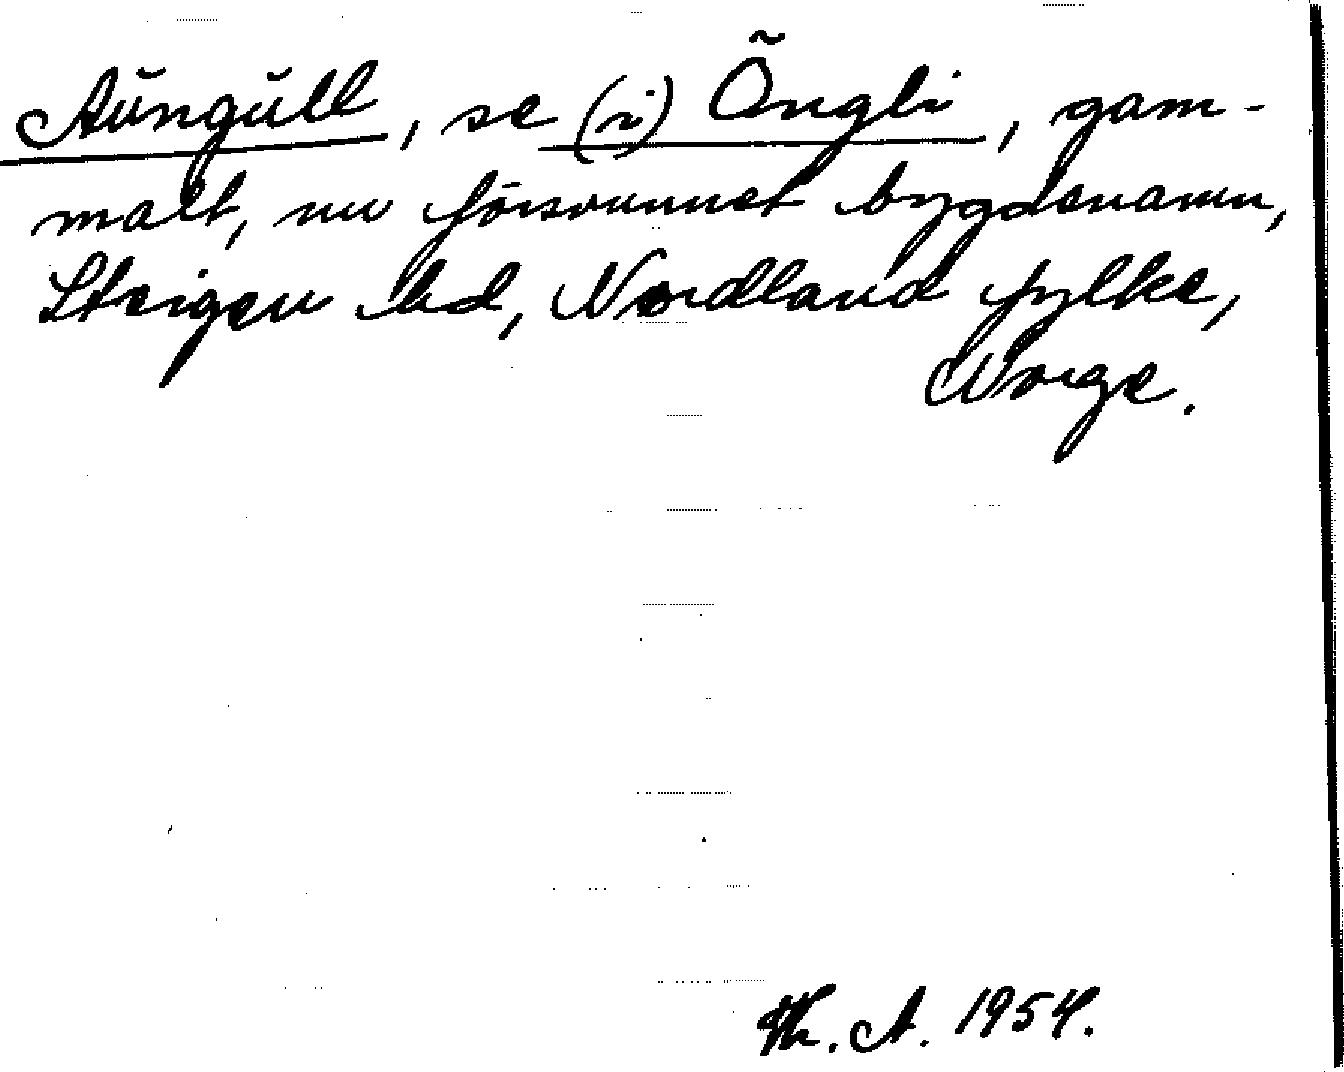 Aŭngŭll, se (i) Õngli, gam-
malt, nu försvunnet bygdenamn,
Steigen hd, Nordland fylke,
Norge.
Th. A. 1954.